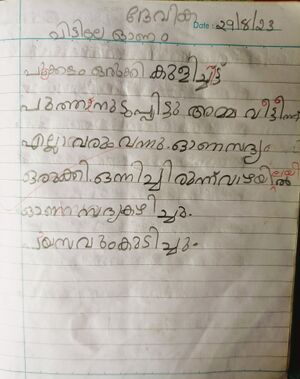 ദേവിക
വീട്ടിലെ ഓണം Date : 29/8/23
പൂക്കളം ഒരുക്കി കുളിച്ചിട്ട്
പുത്തനുടുപ്പിട്ടു അമ്മ വീട്ടീന്ന്
എല്ലാവരും വന്നു. ഓണസദ്യ
ഒരുക്കി. ഒന്നിച്ചിരുന്ന് വാഴയിലയിൽ
ഓണസദ്യകഴിച്ചു.
പായസവുംകുടിച്ചു.